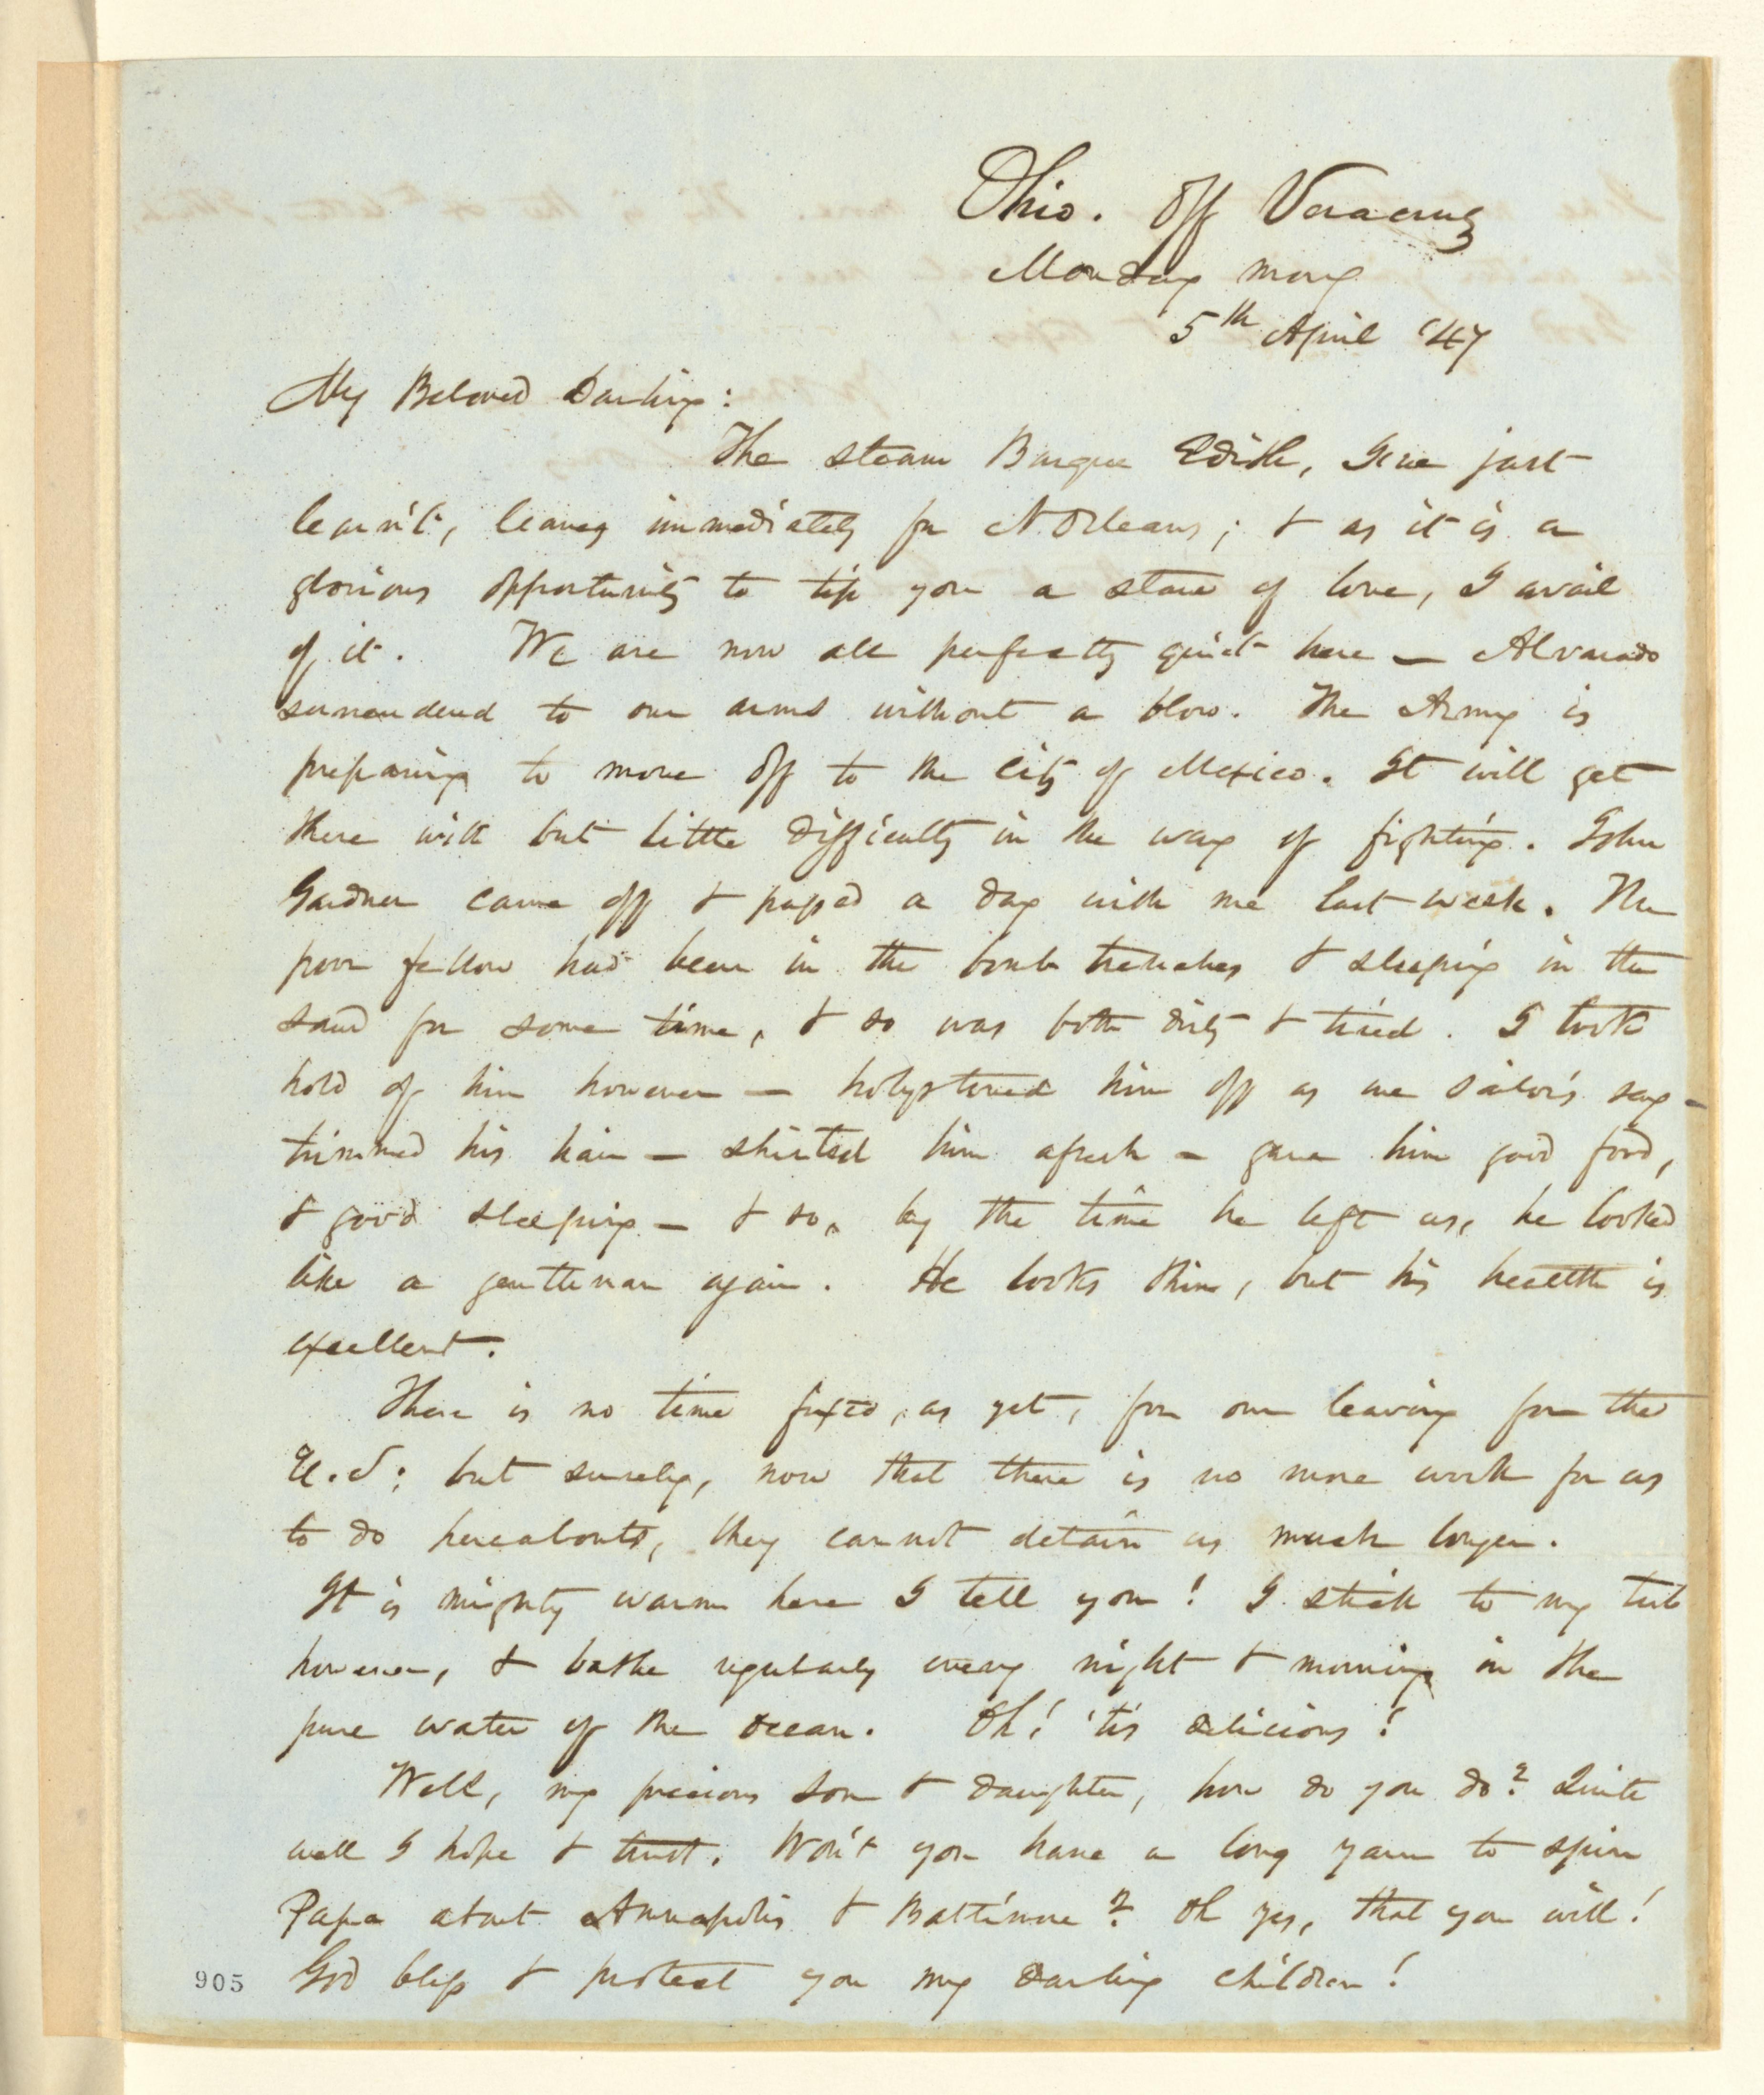 Ohio. Off Veracruz
Monday morng
5th April '47
My Beloved Darling:
The steam Barque Edith, I've just
learn't, leaves immediately for N Orleans; & as it is a
glorious opportunity to tip you a stave of love, I avail
of it. We are now all perfectly quiet here — Alvarado
surrendered to our arms without a blow. The Army is
preparing to move off to the city of Mexico. It will get
there with but little difficulty in the way of fighting. John
Gardner came off & passed a day with me last week. The
poor fellow had been in the bomb trenches & sleeping in the
sand for some time, & so was both dirty & tired. I took
hold of him however — holystoned him off as we sailors say –
trimmed his hair — shirted him afresh – gave him good food,
& good sleeping — & so, by the time he left us, he looked
like a gentleman again. He looks thin, but his health is
excellent.
There is no time fixed, as yet, for our leaving for the
U.S; but surely, now that there is no more work for us
to do hereabouts, they cannot detain us much longer.
It is mighty warm here I tell you! I stick to my tub
however, & bathe regularly every night & morning in the
pure water of the ocean. Oh! 'tis delicious!
Well, my precious son & daughter, how do you do? Quite
well I hope & trust. Won't you have a long yarn to spin
Papa about Annapolis & Baltimore? Oh yes, that you will!
905 God bless & protect you my darling children!